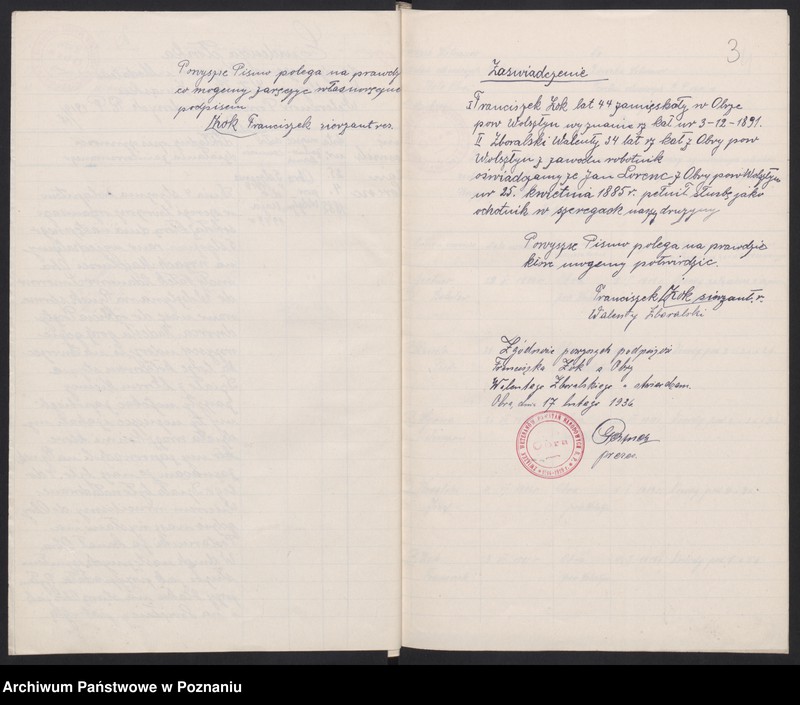 Powyższe Pismo polega na prawdzie
co mogemy zaręczyc własnoręcznie
podpisem
Żok Franciszek sierzant res.
3
Zaswiadczenie
I Franciszek Żok lat 44 zamięskały w Obrze
pow Wolsztyn wyznanie rz kat ur 3-12-1891.
II Zboralski Walenty, 34 lat rz kat z Obry pow
Wolsztyn z zawodu robotnik
oświadczamy że Jan Lorenc z Obry pow Wolsztyn
ur 25. kwietnia 1885 r. pełnił słuzbę jako
ochotnik w szeregach naszej drużyny
Powyzsze Pismo polega na prawdzie
ktore mogemy potwirdzic.
Franciszek Żok sierzant. r.
Walenty Zboralski
Zgodność powyższych podpisów
Franciszka Żok z Obry
Walentego Zboralskiego stwierdzam.
Obra, dnia 17 lutego 1936
ZWIĄZEK WETERANÓW POWSTAŃ NARODOWYCH R.P.
Obra
prezes.
Archiwum Państwowe w Poznaniu